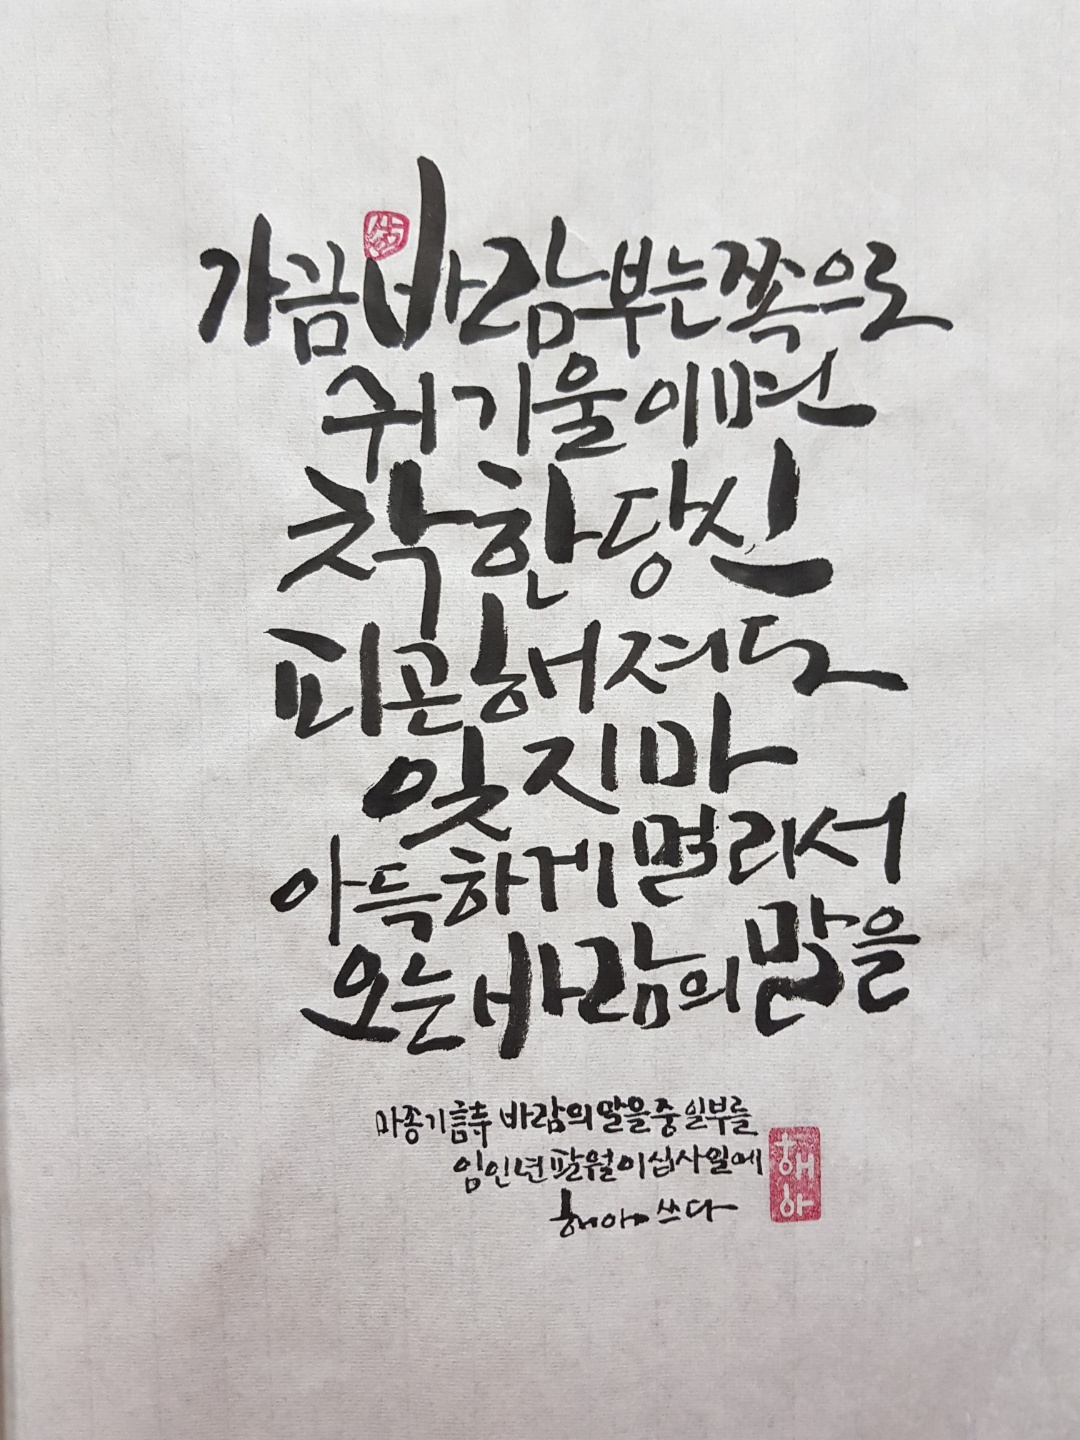 가끔 바람 부는 쪽으로
귀 기울이면
착한 당신
피곤해져도
잊지 마
아득하게 멀리서
오는 바람의 말을
마종기 詩 바람의 말을 중 일부를
임인년 팔월 이십사일에
해아 쓰다
해아